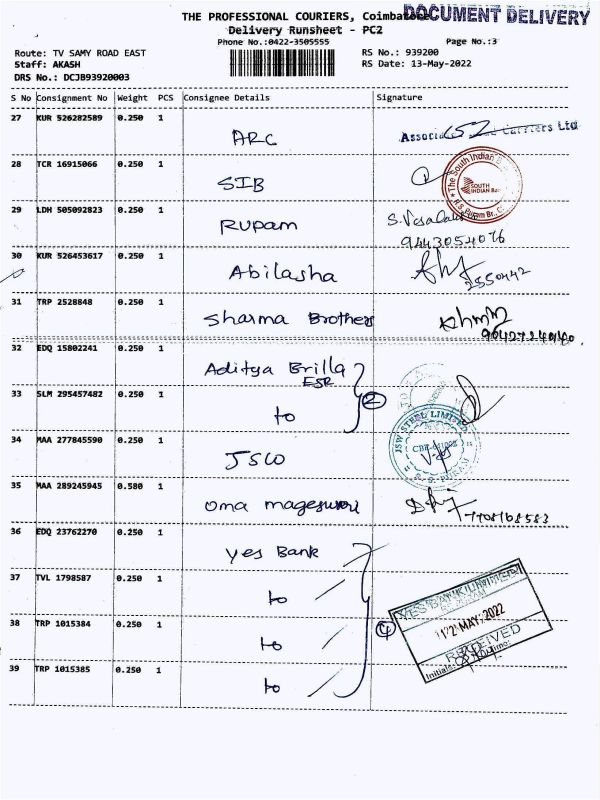 THE PROFESSIONAL COURIERS, Coimbatore
DOCUMENT DELIVERY
Delivery Runsheet - PC2
Phone No.:0422-3505555
Page No.:3
Route: TV SAMY ROAD EAST
RS No.: 939200
Staff: AKASH
RS Date: 13-May-2022
DRS No.: DCJB93920003
S No Consignment No Weight PCS Consignee Details Signature
27 KUR 526282589 0.250 1 ARC
28 TCR 16915066 0.250 1 SIB
The South Indian
SOUTH INDIAN
29 LDH 505092823 0.250 1 Rupam
9443054076
30 KUR 526453617 0.250 1 Abilasha
2550442
31 TRP 2528848 0.250 1 Sharma Brothers
32 EDQ 15802241 0.250 1 Aditya Brilla
33 SLM 295457482 0.250 1 to
2
JSW STEEL LIMITED
34 MAA 277845590 0.250 1 JSW
35 MAA 289245945 0.580 1 oma
7708168583
36 EDQ 23762270 0.250 1 Yes Bank
37 TVL 1798587 0.250 1 to
38 TRP 1015384 0.250 1 to
4
39 TRP 1015385 0.250 1 to
YES BANK LIMITED
12 MAY 2022
RECEIVED